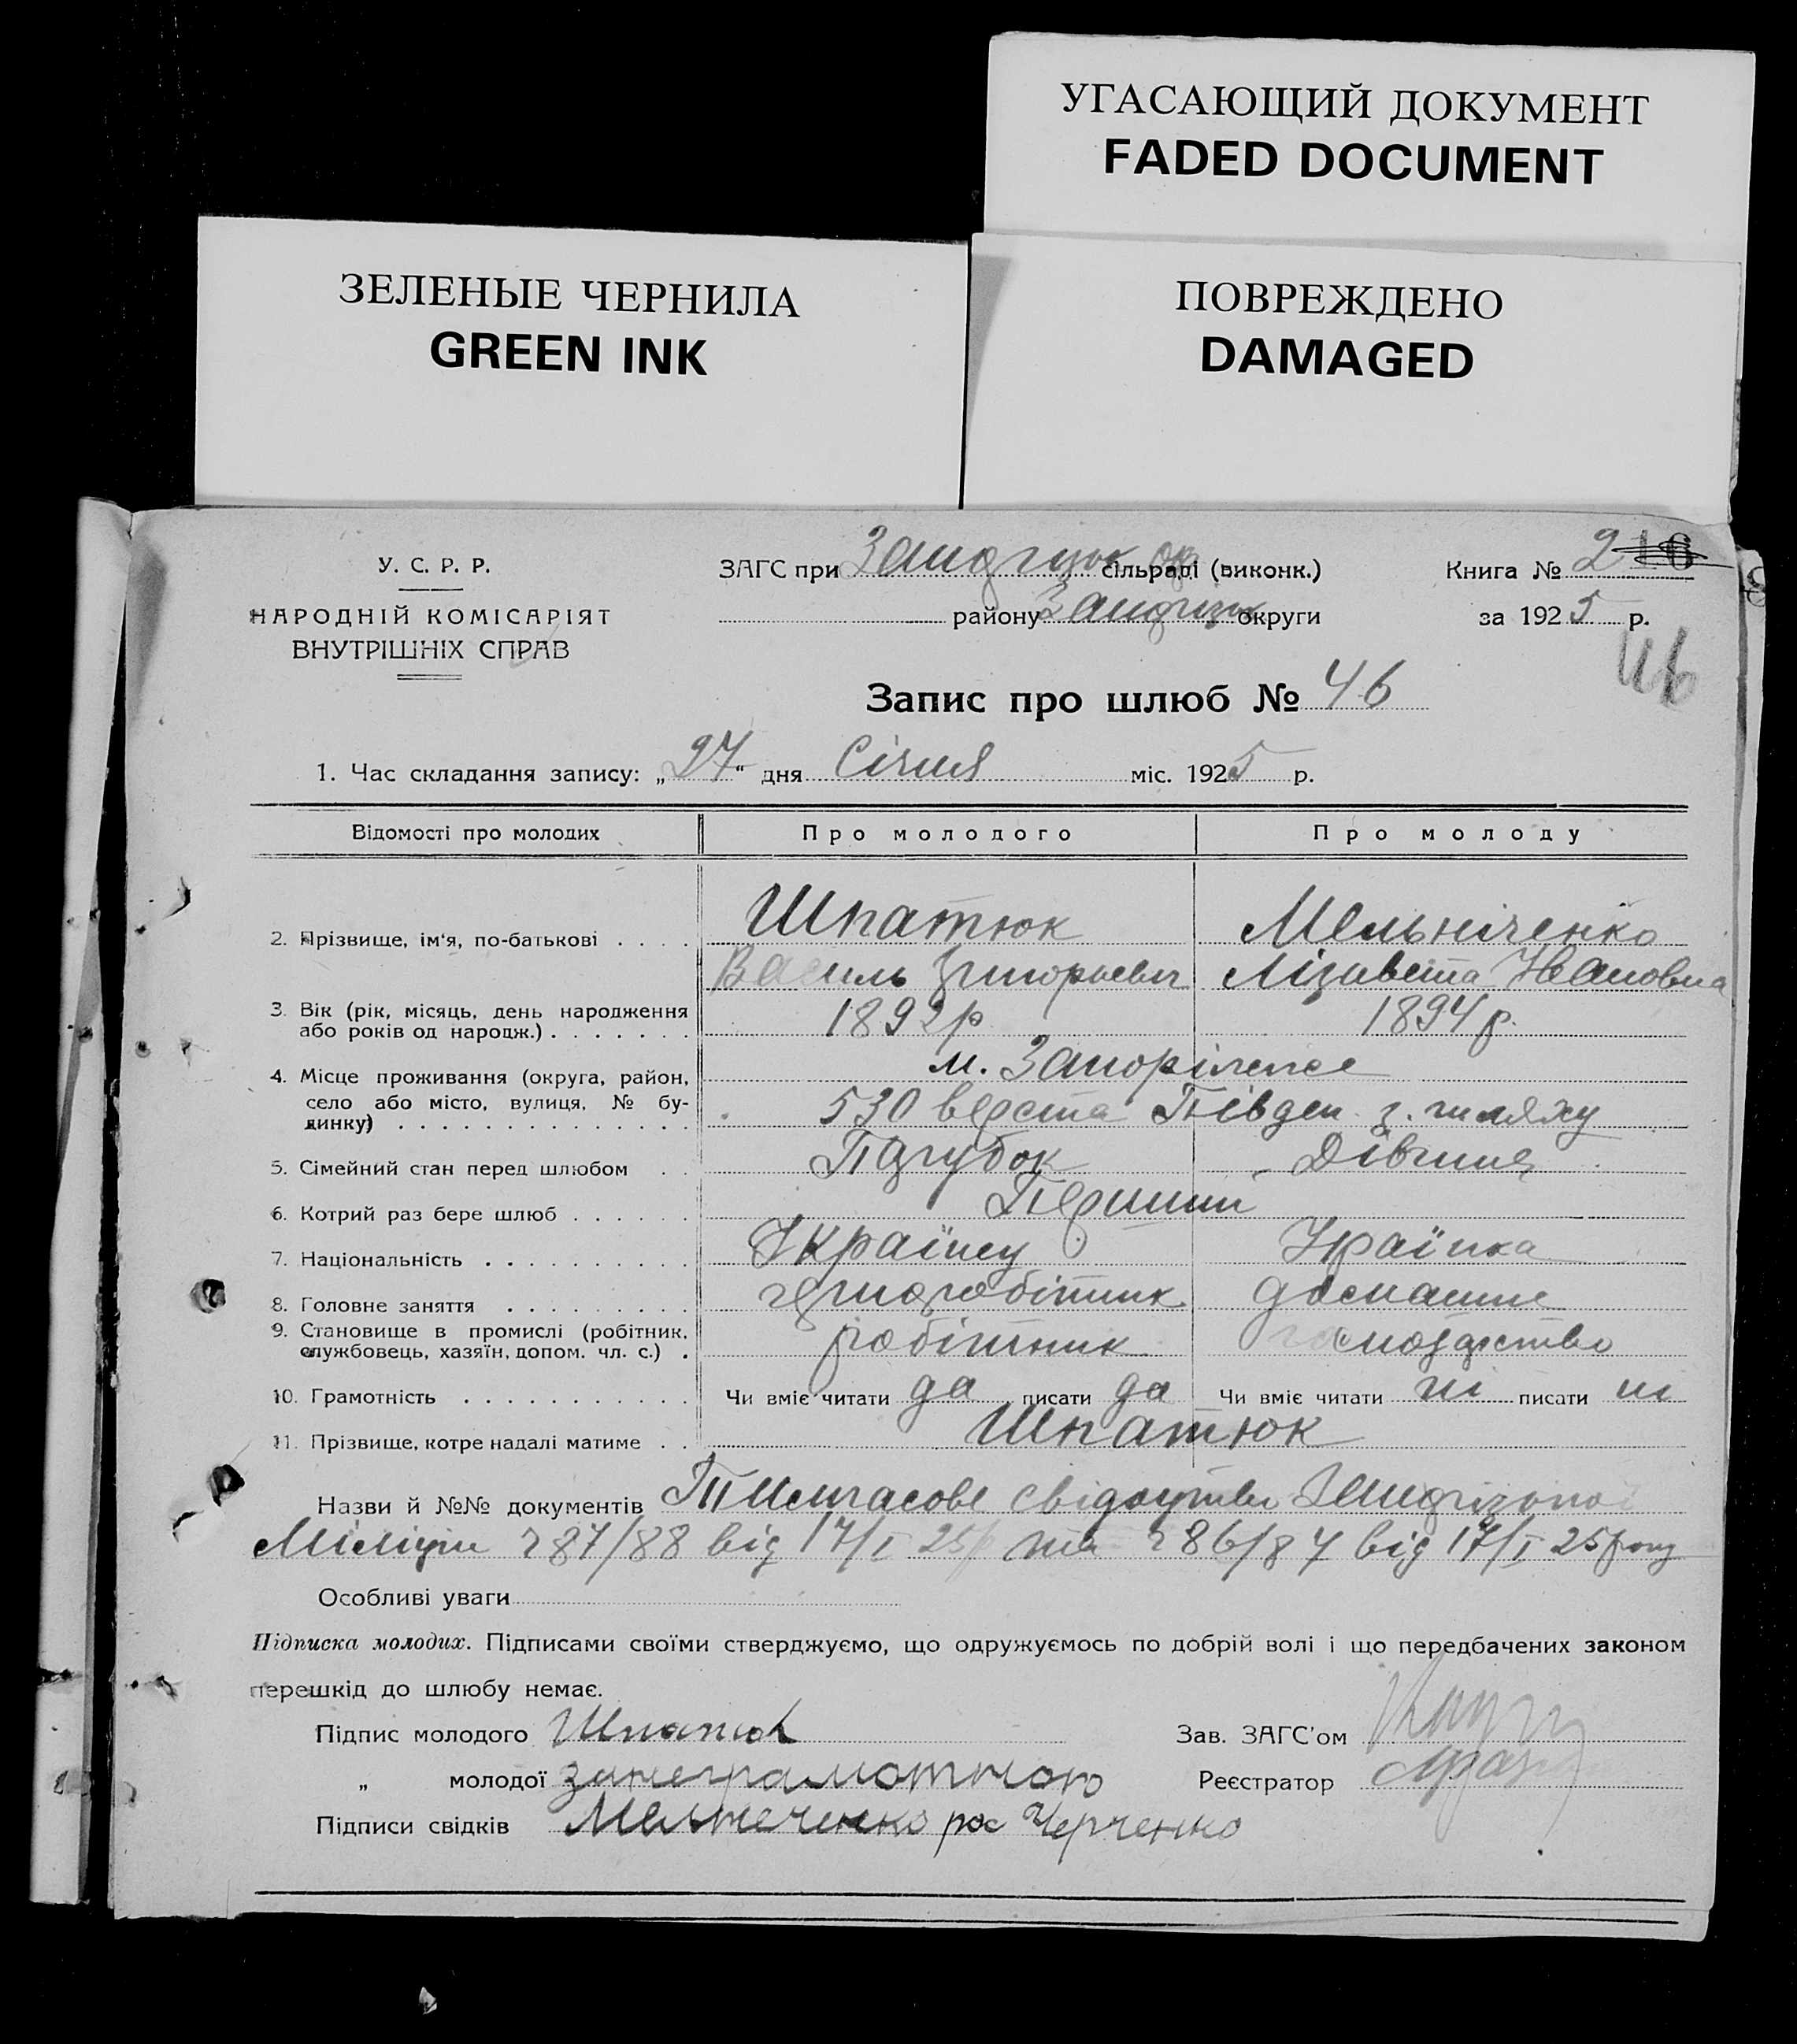 УГАСАЮЩИЙ ДОКУМЕНТ
FADED DOCUMENT
ЗЕЛЕНЫЕ ЧЕРНИЛА
GREEN INK
ПОВРЕЖДЕНО
DAMAGED
У. С. Р. Р.
НАРОДНІЙ КОМІСАРІЯТ
ВНУТРІШНІХ СПРАВ
ЗАГС при сільраді (виконк.)
району округи
Книга № 2 16
за 1925 р.
46
Запис про шлюб № 46
1. Час складання запису: „27“ дня Січня міс. 1925 р.
Відомості про молодих Про молодого Про молоду
2. Прізвище, ім'я, по-батькові . . . . Шпатюк Мельніченко
Василь Григорьевич Лізавета Ивановна
3. Вік (рік, місяць, день народження
або років од народж.) . . . . . . . 1892р 1894р.
4. Місце проживання (округа, район,
село або місто, вулиця, № бу-
динку) . . . . . . . . . . . . . .
м. Запоріжжє
530 верста Півден. з. шляху
5. Сімейний стан перед шлюбом . . Парубок Дівчина
6. Котрий раз бере шлюб . . . . . . Перший
7. Національність . . . . . . . . . . Українец Украінка
8. Головне заняття . . . . . . . . . чорноробітник домашне
9. Становище в промислі (робітник,
службовець, хазяїн, допом. чл. с.) . робітник господарство
10. Грамотність . . . . . . . . . . . Чи вміє читати да писати да Чи вміє читати ні писати ні
11. Прізвище, котре надалі матиме . . Шпатюк
Назви й №№ документів Тимчасове свідоцтво
Міліціи 87/88 від 17/I 25р та 86/87 від 17/I 25року
Особливі уваги
Підписка молодих. Підписами своїми стверджуємо, що одружуємось по добрій волі і що передбачених законом
перешкід до шлюбу немає.
Підпис молодого Шпатюк Зав. ЗАГС'ом
„ молодої за неграмотною Реєстратор
Підписи свідків Мельнеченко Черченко